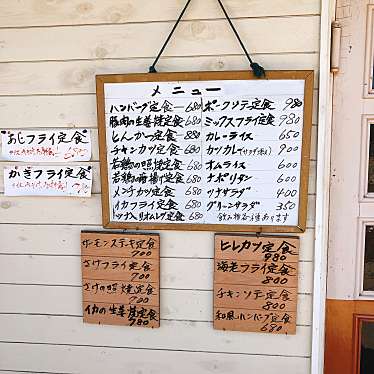 メニュー
ハンバーグ定食 680
豚肉の生姜焼定食 680
とんかつ定食 880
チキンカツ定食 680
若鶏の照焼定食 680
若鶏の唐揚定食 680
メンチカツ定食 680
イカフライ定食 680
ナット入りオムレツ定食 680
ポークソテー定食 980
ミックスフライ定食 980
カレーライス 650
カツカレー(サラダ付) 900
オムライス 600
ナポリタン 600
ツナサラダ 400
グリーンサラダ 350
飲み物各種あります
あじフライ定食
かきフライ定食
サーモンステーキ定食
700
さけフライ定食
700
さけの照焼定食
700
イカの生姜焼定食
780
ヒレカツ定食
980
海老フライ定食
800
チキンソテー定食
800
和風ハンバーグ定食
680